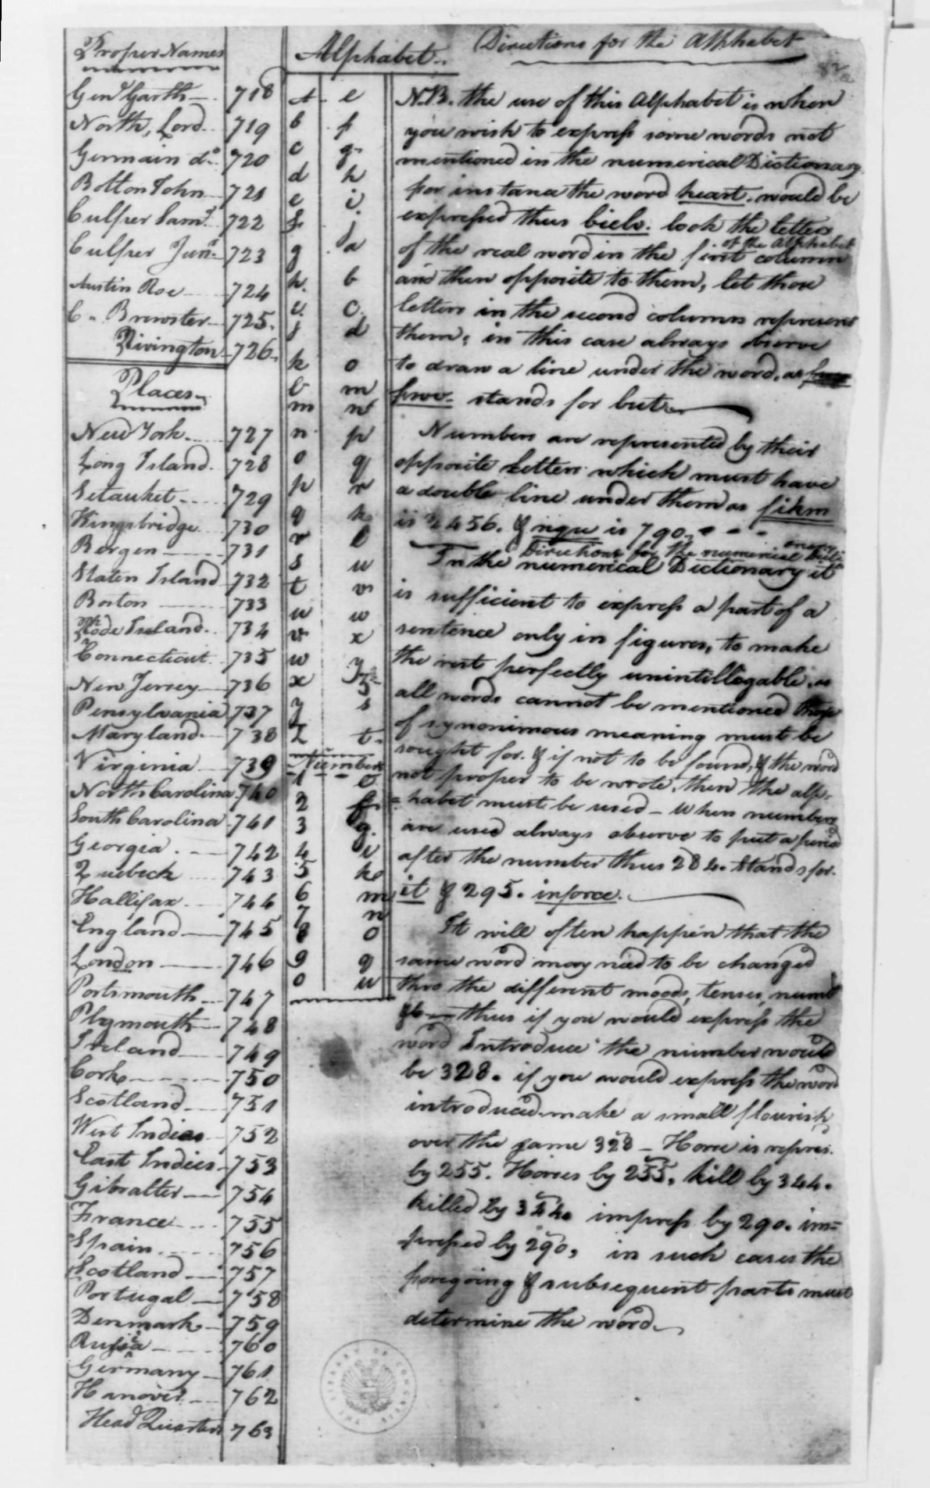 Proper Names
Genl Garth 718
North, Lord 719
Germain do 720
Bolton John 721
Culper Saml 722
Culper Junr 723
Austin Roe 724
C. Brewster 725.
Rivington 726.
Places
New York 727
Long Island. 728
Setauket 729
Kingsbridge 730
Bergen 731
Staten Island 732
Boston 733
Rode Island 734
Connecticut 735
New Jersey 736
Pensylvania 737
Maryland 738
Virginia 739
North Carolina 740
South Carolina 741
Georgia. 742
Quebeck 743
Hallifax 744
England 745
London 746
Portsmouth 747
Plymouth 748
Ireland 749
Cork 750
Scotland 751
West Indies 752
East Indies 753
Gibralter 754
France 755
Spain 756
Scotland 757
Portugal 758
Denmark 759
Russia 760
Germany 761
Hanover 762
Head Quarters 763
Alphabet.
a e
b f
c g
d h
e i
f j
g a
h b
i c
j d
k o
l m
m n
n p
o q
p r
q k
r l
s u
t v
u w
v x
w y
x z
y s
z t
Numbers
1 e
2 f
3 g
4 i
5 k
6 m
7 n
8 o
9 q
0 u
Directions for the Alphabet
N.B. the use of this Alphabet is when
you wish to express some words not
mentioned in the numerical Dictionary
for instance the word heart. would be
expressed thus bielv. look the letters
of the real word in the first column
of the Alphabet
and then opposite to them, let those
letters in the second column represent
them, in this case always observe
to draw a line under the word, as
fwv. stands for but
Numbers are represented by their
opposite letters which must have
a double line under them as fikm
is 2456. & nqu is 790.
Directions for the numerical
In the numerical Dictionary it
is sufficient to express a part of a
sentence only in figures, to make
the rest perfectly unintellegable, as
all words cannot be mentioned those
of synonimous meaning must be
sought for. & if not to be found, & the word
not proper to be wrote, then the alp-
habet must be used — When numbers
are used always observe to put a period
after the number thus 284. stands for
it & 295. inforce.
It will often happen that the
same word may need to be changed
thro the different moods, tenses, numb
thus if you would express the
word Introduce the number would
be 328. if you would express the word
introduced make a small flourish
over the same 328 — Horse is repres.
by 255. Horses by 255, kill by 344.
killed by 344. impress by 290. im=
pressed by 290, in such cases the
foregoing & subsequent parts must
determine the word
THE LIBRARY OF CONGRESS